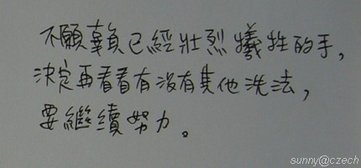 不願賴已經壯烈犧牲的手,
決定再看看有沒有其他洗法,
要繼續努力。
sunny@czech